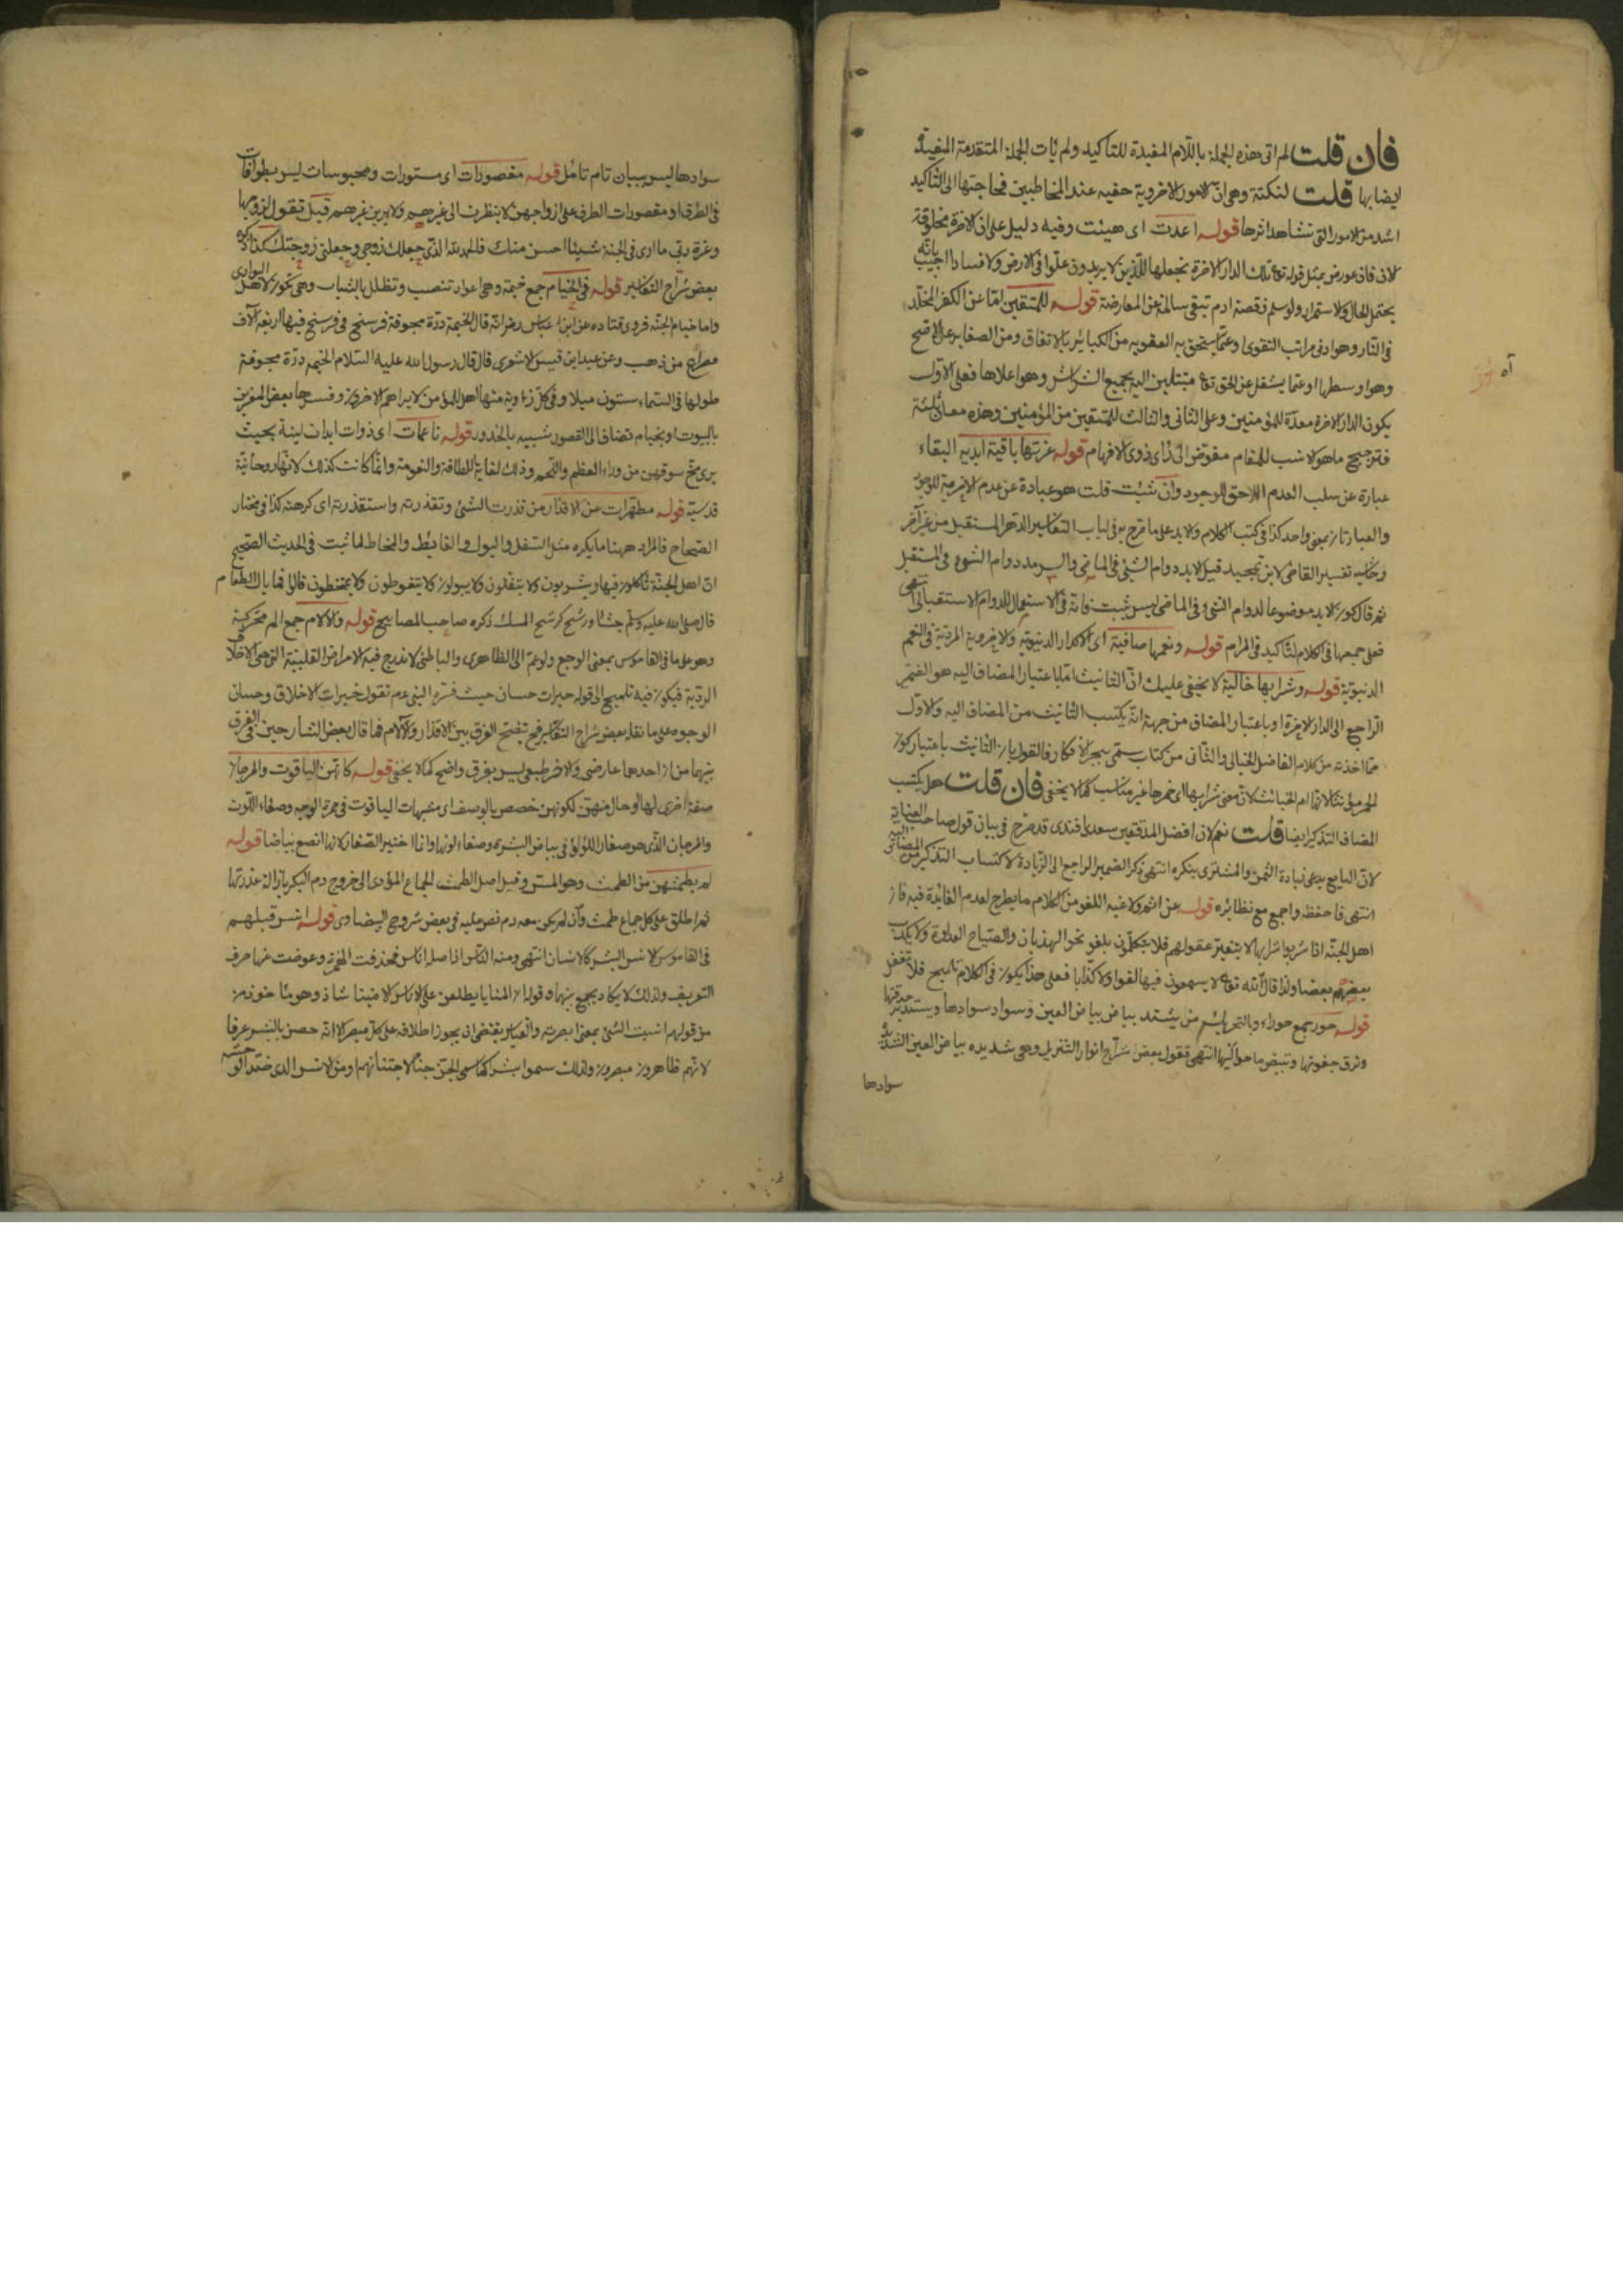 فان قلت لم اتى هذه الجملة باللام المفيدة للتاكيد ولم يات الجملة المتقدمة المفيدة
ايضا بها قلت لنكتة وهى ان الامور الاخروية خفيه عند المخاطبين فحاجتها الى التاكيد
اشد من الامور التى تشاهد اثرها قوله اعدت اى هيئت وفيه دليل على ان الاخرة مخلوقة
الان فان عورض بمثل قوله تع تلك الدار الاخرة نجعلها للذين لا يريدون علوا فى الارض ولا فسادا اجيب بانه
يحتمل الحال والاستمرار ولو سلم فقصة ادم تبقى سالمة عن المعارضة قوله للمتقين اما عن الكفر المخلد
فى النار وهو ادنى مراتب التقوى او عما يستحق به العقوبه من الكبائر بالاتفاق ومن الصغاير على الاصح
وهو اوسطها او عما يشغل عن الحق تع متبتلين اليه بجميع الشراشر وهو اعلاها فعلى الاول
يكون الدار الاخرة معدة للمؤمنين وعلى الثانى والثالث للمتقين من المؤمنين وهذه معان ثلثة
فترجيح ما هو الانسب للمقام مفوض الى راى ذوى الافهام قوله غرتها باقية ابدية البقاء
عبارة عن سلب العدم اللاحق للوجود وان شئت قلت هو عبارة عن عدم الاخرية للوجود
والعبارتان بمعنى واحد كذا فى كتب الكلام والابد على ما صرح به فى لباب التفاسير الدهر المستقبل من غير آخر
وحاشيه تفسير القاضى لابن تمجيد قيل الابد دوام الشئ فى الماضى والسرمد دوام الشئ فى المستقبل
ثم قال كون الابد موضوعا لدوام الشئ فى الماضى ليس بثبت فانه فى الاستعمال للدوام الاستقبالى انتهى
فعلى جمعها فى الكلام لتاكيد فى المرام قوله ونعمها صافية اى الاكدار الدنيوية والاخروية المردية فى النعم
الدنيوية قوله وشرابها خالية لا يخفى عليك ان التانيث اما باعتبار المضاف اليه هو الضمير
الراجع الى الدار الاخرة او باعتبار المضاف من جهة انه يكتسب التانيث من المضاف اليه والاول
مما اخذته من كلام الفاضل الخيالى والثانى من كتاب سمى بحر الافكار فالقول بان التانيث باعتبار كون
الخمر مؤنثا لانها ام الخبائث لان معنى شرابها اى خمرها غير مناسب كما لا يخفى فان قلت هل يكتسب
المضاف التذكير ايضا قلت نعم لان افضل المدققين سعدى افندى قد صرح فى بيان قول صاحب العناية
لان البايع يدعى زيادة الثمن والمشترى ينكره انتهى ذكر الضمير الراجع الى الزيادة لاكتساب التذكير من المضاف اليه
انتهى فاحفظه واجمع مع نظائره قوله عن اثم ولاغيه اللغو من الكلام ما يطرح لعدم الفايدة فيه فان
اهل الجنة اذا شربوا شرابها لا يتغير عقولهم فلا يتكلمون بلغو نحو الهذيان والصياح العداوة ولا يكذب
بعضهم بعضا ولذا قال الله تع لا يسمعون فيها لغوا ولا كذابا فعلى هذا يكون فى الكلام تلميح فلا تغفل
قوله حور جمع حوراء وبالتحريك من يشتد بياض بياض العين وسواد سوادها ويستدير حدقتها
وترق جفونها وتبيض ما حواليها انتهى فقول بعض شراح انوار التنزيل وهى شديده بياض العين الشديدة
سوادها
سوادها ليس ببيان تام تامل قوله مقصورات اى مستورات ومحبوسات ليس بطوافات
فى الطرق او مقصورات الطرف على ازواجهن لا ينظرن الى غيرهم ولا يرين غيرهم قيل تقول لزوجها
وعزة ربى ما ارى فى الجنة شيئا احسن منك فالحمد لله الذى جعلك زوجى وجعلنى زوجتك كذا ذكره
بعض شراح التفاسير قوله فى الخيام جمع خيمة وهى اعواد تنصب وتظلل بالثياب وهى تكون لاهل البوادى
واما خيام الجنة فروى قتاده عن ابن عباس رض انه قال الخيمة درة مجوفة فرسخ فى فرسخ فيها اربعة الآف
مصراع من ذهب وعن عبد ابن قيس الاشعرى قال قال رسول الله عليه السلام الخيمه درة مجوفة
طولها فى السماء ستون ميلا وفى كل زاوية منها اهل للمؤمن لا يراهم الاخرون وفسرها بعض المفسرين
بالبيوت او بخيام تضاف الى القصور شبيه بالخدور قوله ناعمات اى ذوات ابدان لينة بحيث
يرى مخ سوقهن من وراء العظم واللحم وذلك لغاية اللطافة والنعومة وانما كانت كذلك لانها روحانية
قدسية قوله مطهرات عن الاقذار من قذرت الشئ وتقذرته واستقذرته اى كرهته كذا فى مختار
الصحاح فالمراد ههنا ما يكره مثل التفل والبول والغايط والمخاط لما ثبت فى الحديث الصحيح
ان اهل الجنة ياكلون فيها ويشربون ولا يتفلون ولا يبولون ولا يتغوطون ولا يمتخطون قالوا فما بال الطعام
قال صلى الله عليه وسلم جشاء ورشح كرشح المسك ذكره صاحب المصابيح قوله والآلام جمع الم محركة
وهو على ما فى القاموس بمعنى الوجع ولو عم الى الظاهرى والباطنى لاندرج فيه الامراض القلبية التى هى الاخلاق
الردية فيكون فيه تلميح الى قوله خيرات حسان حيث فسره النبى عم تقول خيرات الاخلاق وحسان
الوجوه على ما نقله بعض شراح التفاسير فح تفتح الفرق بين الاقذار والآلام فما قال بعض الشارحين فى الفرق
بينهما من ان احدهما عارضى والاخر طبيعى ليس بفرق واضح كما لا يخفى قوله كانهن الياقوت والمرجان
صفة اخرى لها او حال منهن لكونهن خصص بالوصف اى مشبهات الياقوت فى حمرة الوجه وصفاء اللون
والمرجان الذى هو صغار اللؤلؤ فى بياض البشرة وصفاء لونها وانما اختير الصغار لانها انصع بياضا قوله
لم يطمثهن من الطمث وهو المس وقيل اصل الطمث الجماع المؤدى الى خروج دم البكر بازالة عذرتها
ثم اطلق على كل جماع طمث وان لم يكن معه دم نص عليه فى بعض شروح البيضاوى قوله انس قبلهم
فى القاموس الانس البشر كالانسان انتهى ومنه الناس اذ اصله اناس فحذفت الهمزة وعوضت عنها حرف
التعريف ولذلك لا يكاد يجمع بينهما وقوله ان المنايا يطلعن على الاناس الامنينا شاذ وهو ماخوذ من
من قولهم انست الشئ بمعنى ابصرته والقياس يقتضى ان يجوز اطلاقه على كل مبصر الا انه خص بالبشر عرفا
لانهم ظاهرون مبصرون ولذلك سموا بشرا كما سمى الجن جنا لاجتنانهم ومن الانس الذى ضد الوحشة